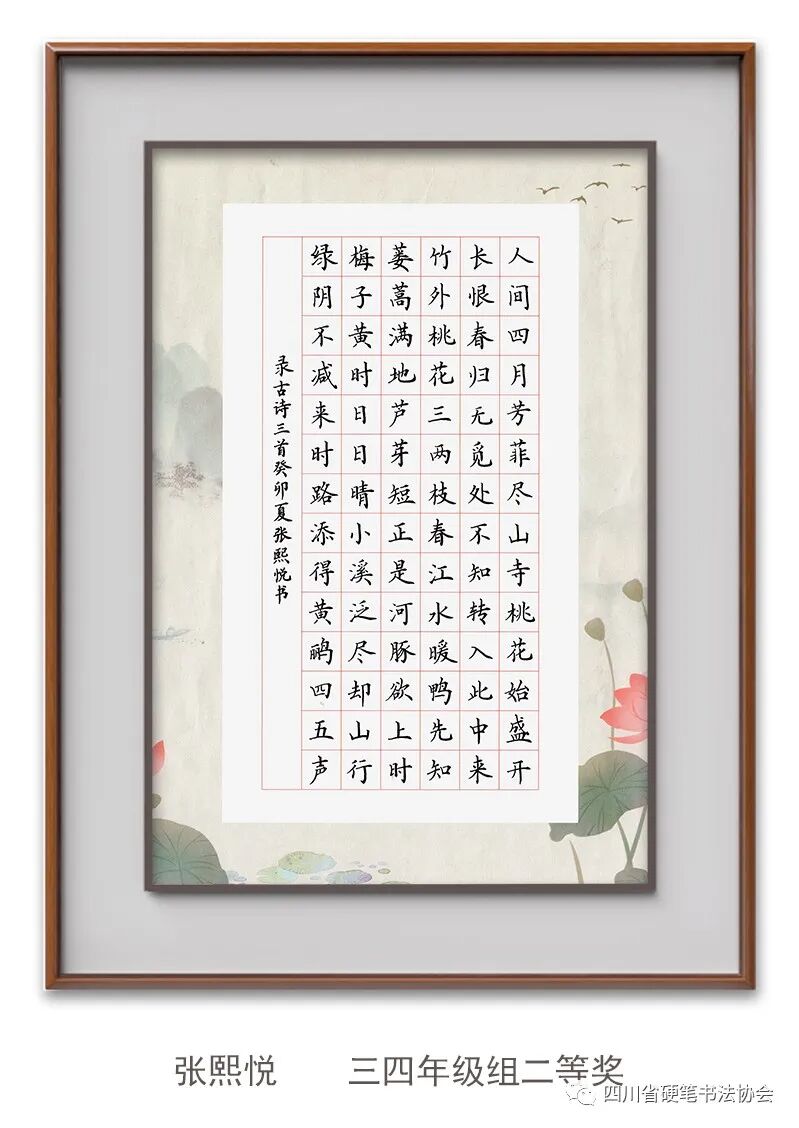 人间四月芳菲尽山寺桃花始盛开
长恨春归无觅处不知转入此中来
竹外桃花三两枝春江水暖鸭先知
蒌蒿满地芦芽短正是河豚欲上时
梅子黄时日日晴小溪泛尽却山行
绿阴不减来时路添得黄鹂四五声
录古诗三首癸卯夏张熙悦书
张熙悦 三四年级组二等奖
四川省硬笔书法协会